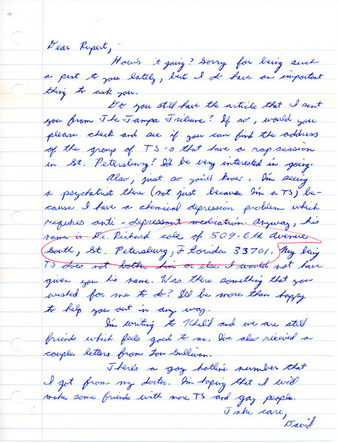 Dear Rupert,
How's it going? Sorry for being such
a pest to you lately, but I do have an important
thing to ask you.
Do you still have the article that I sent
you from The Tampa Tribune? If so, would you
please check and see if you can find the address
of the group of TS-s that have a rap session
in St. Petersburg? I'd be very interested in going.
Also, just so you'll know. I'm seeing
a psychiatrist there (not just because I'm a TS) be-
cause I have a chemical depression problem which
requires anti-depressant medication. Anyway, his
name is Dr. Richard Cole of 509-6th Avenue
South, St. Petersburg, Florida 33701. My being
TS does not bother him or else I would not have
given you his name. Was there something that you
wished for me to do? I'll be more than happy
to help you out in any way.
I'm writing to Khalil and we are still
friends which feels good to me. I've also received a
couple letters from Lou Sullivan.
There's a gay hotline number that
I got from my doctor. I'm hoping that I will
make some friends with more TS and gay people.
Take care,
David